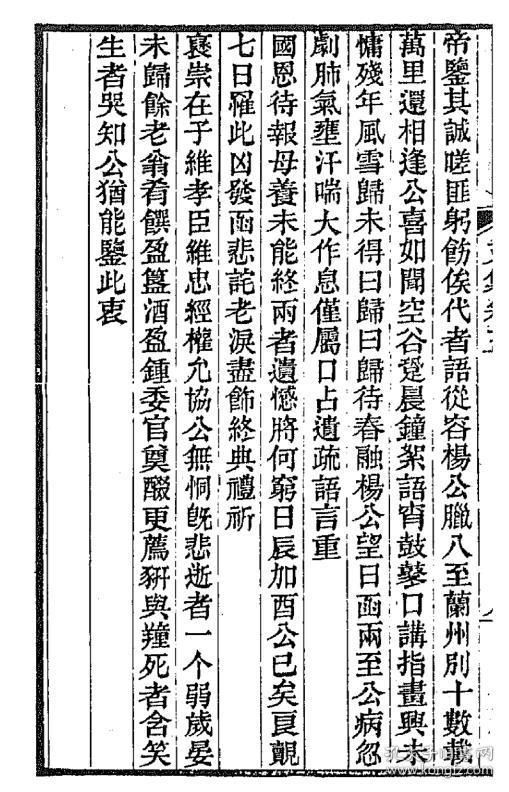 帝鑒其誠嗟匪躬飭俟代者語從容楊公臘八至蘭州別十數載
萬里還相逢公喜如聞空谷跫晨鐘絮語宵鼓鼕口講指畫興未
慵殘年風雪歸未得曰歸曰歸待春融楊公望日函兩至公病忽
劇肺氣壅汗喘大作息僅屬口占遺疏語言重
國恩待報母養未能終兩者遺憾將何窮日辰加酉公已矣良覿
七日罹此凶發函悲詫老淚盡飾終典禮祈
褒崇在子維孝臣維忠經權允協公無恫既悲逝者一个弱歲晏
未歸餘老翁肴饌盈簋酒盈鍾委官奠醊更薦豜與死者含笑
生者哭知公猶能鑒此衷